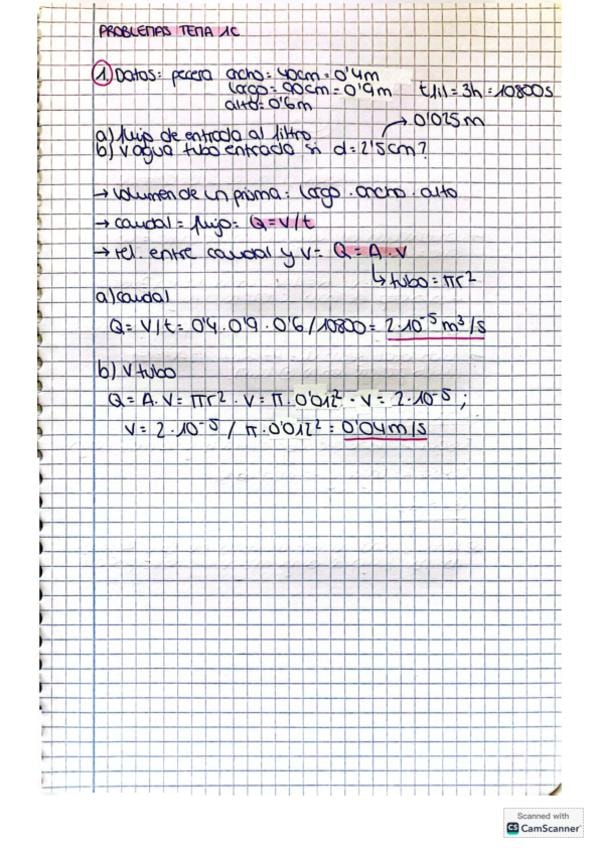 PROBLEMAS TEMA 1C
1. Datos: pecera ancho: 40cm = 0'4m
largo = 90cm = 0'9m tfil = 3h = 10800s
alto = 0'6m
→ 0'025m
a) flujo de entrada al filtro
b) v agua tubo entrada si d = 2'5cm?
→ volumen de un prisma: largo · ancho · alto
→ caudal = flujo: Q = V/t
→ rel. entre caudal y v = Q = A · v
↳ tubo = πr²
a) caudal
Q = V/t = 0'4 · 0'9 · 0'6 / 10800 = 2 · 10⁻⁵ m³/s
b) v tubo
Q = A · v = πr² · v = π · 0'012² · v = 2 · 10⁻⁵ ;
v = 2 · 10⁻⁵ / π · 0'012² = 0'04 m/s
Scanned with
CS CamScanner